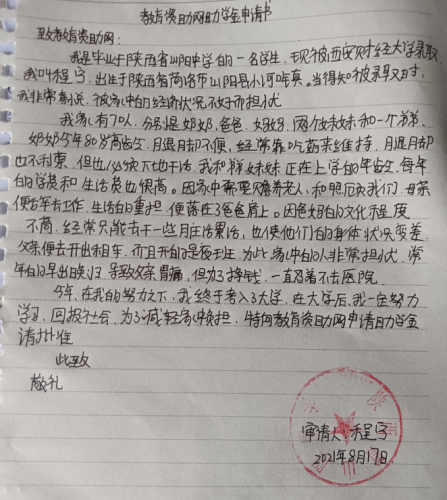 教育资助网助学金申请书
致教育资助网:
我是毕业于陕西省山阳中学的一名学生,现被西安财经大学录取
我叫程宇,出生于陕西省商洛市山阳县小河口镇。当得知被录取时,
我非常喜悦,被家中的经济状况不好而担忧
我家有7口人,分别是奶奶,爸爸,妈妈,两个妹妹和一个弟弟,
奶奶今年80岁高龄,腿脚不便,经常靠吃药来维持,腿脚
也不利索,但也必须下地干活,我和弟妹妹正在上学的年龄,每年
的学费和生活费也很高。因家中需要赡养老人,和照顾我们,母亲
便去军工作,生活的重担便落在了爸爸肩上。因爸妈的文化程度
不高,经常只能去干一些脏活累活,也使他们的身体状况变差
父亲便去开出租车,而且开的是夜班,为此家中的人非常担忧,常
年的早出晚归,导致父亲胃痛,但为了挣钱,一直忍着不去医院。
今年,在我的努力之下,我终于考入了大学,在大学后,我一定努力
学习,回报社会,为了减轻家中负担,特向教育资助网申请助学金
请批准
此致
敬礼
申请人:程宇
2021年8月17日